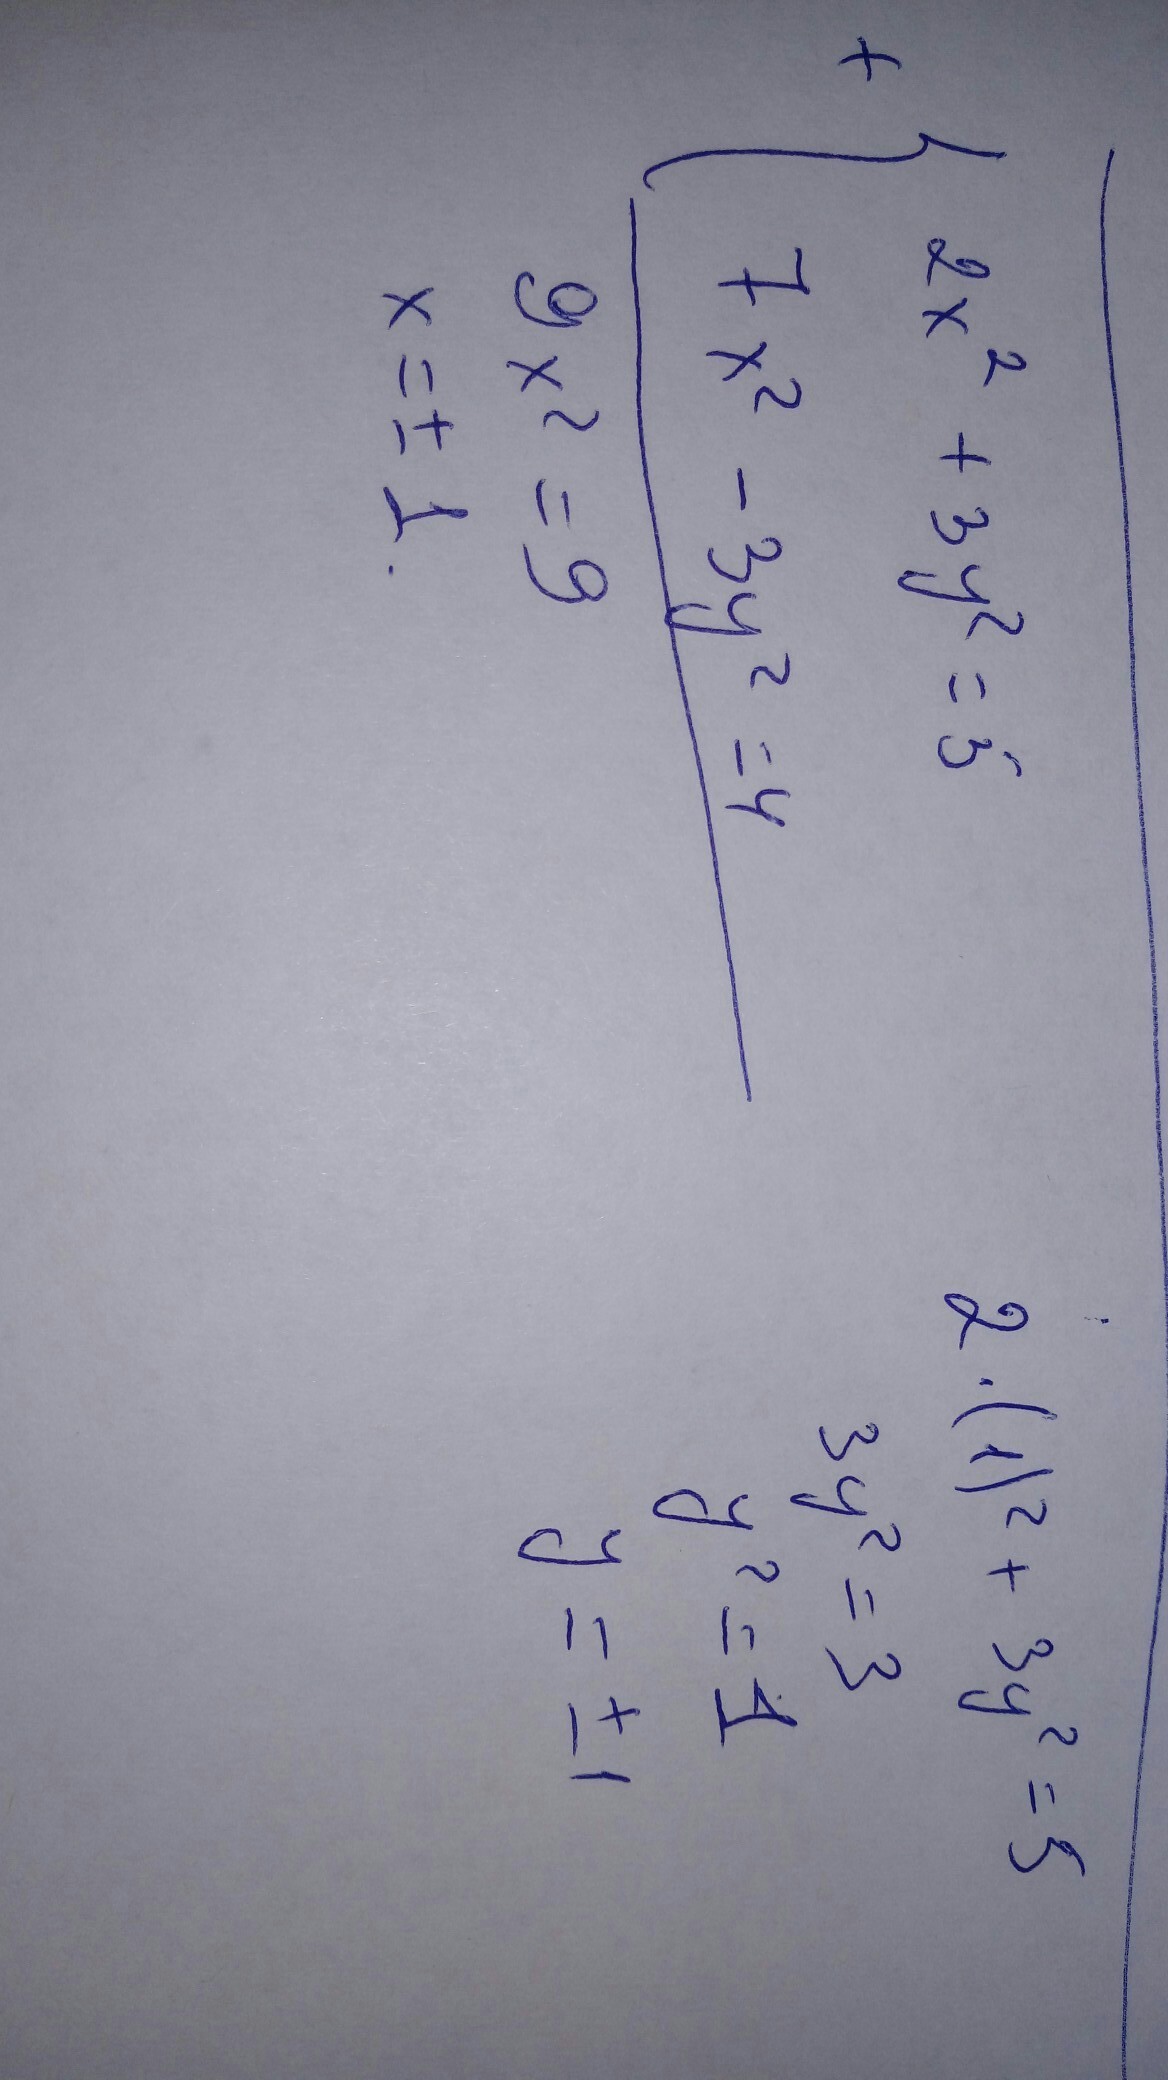 + { 2x² + 3y² = 5
7x² - 3y² = 4
9x² = 9
x = ± 1.
2·(1)² + 3y² = 5
3y² = 3
y² = 1
y = ±1